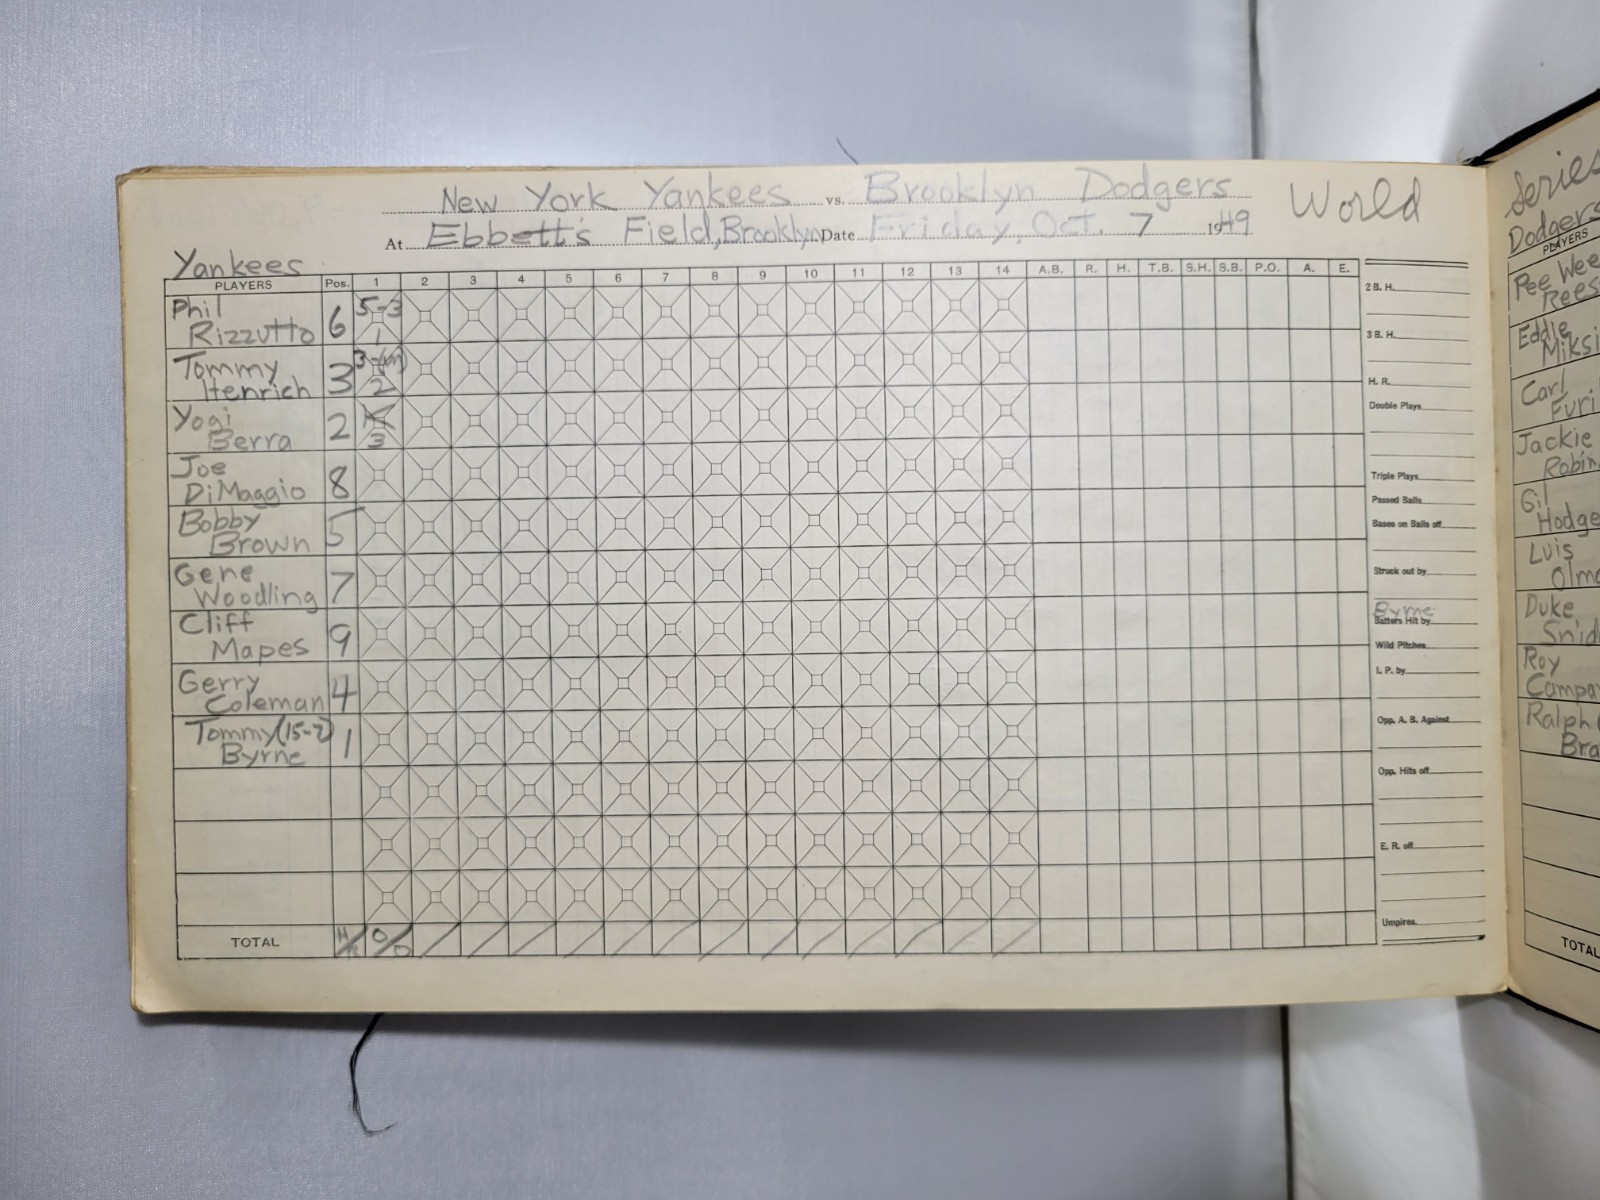 New York Yankees vs. Brooklyn Dodgers World
At Ebbett's Field, Brooklyn Date Friday, Oct. 7 1949
Yankees
PLAYERS Pos. 1 2 3 4 5 6 7 8 9 10 11 12 13 14 A.B. R. H. T.B. S.H. S.B. P.O. A. E.
Phil
Rizzutto 6 5-3 1
Tommy
Henrich 3 3-(un) 2
Yogi
Berra 2 K 3
Joe
DiMaggio 8
Bobby
Brown 5
Gene
Woodling 7
Cliff
Mapes 9
Gerry
Coleman 4
Tommy (15-7)
Byrne 1
TOTAL H/R 0/0
2 B. H.
3 B. H.
H. R.
Double Plays
Triple Plays
Passed Balls
Bases on Balls off
Struck out by
Byrne
Batters Hit by
Wild Pitches
I. P. by
Opp. A. B. Against
Opp. Hits off
E. R. off
Umpires
Series
Dodgers
PLAYERS
Pee Wee
Rees
Eddie
Miksi
Carl
Furi
Jackie
Robin
Gil
Hodge
Luis
Olmo
Duke
Snid
Roy
Campa
Ralph
Bra
TOTAL